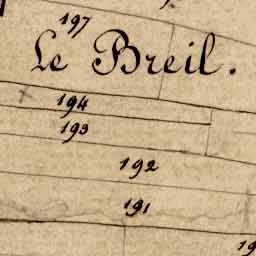 197
Le Breil.
194
193
192
191
19